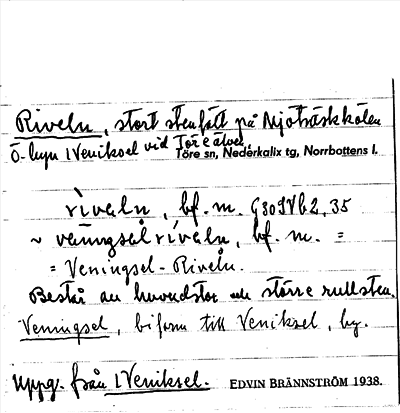 Riveln, stort stenfält på Mjöträskkölen
Ö-byn 1 Veniksel vid Töre älven,
Töre sn, Nederkalix tg, Norrbottens l.
rìveln, bf. m. G 30 IV b 2, 35
~ veningsel rìveln, bf. m. =
= Veningsel-Riveln.
Består av huvudstor och större rullsten.
Veningsel, biform till Veniksel, by.
Uppg. från 1 Veniksel. EDVIN BRÄNNSTRÖM 1938.